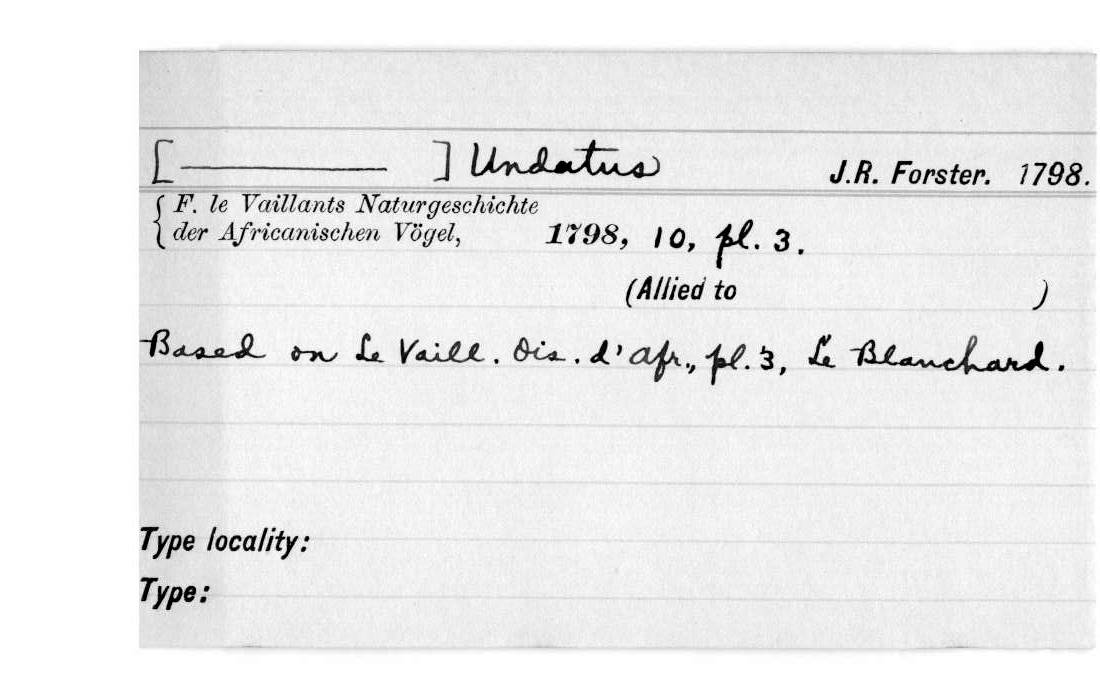 [ ———— ] Undatus J.R. Forster. 1798.
F. le Vaillants Naturgeschichte
der Africanischen Vögel, 1798, 10, pl. 3.
(Allied to )
Based on Le Vaill. Ois. d'Afr., pl. 3, Le Blanchard.
Type locality:
Type: